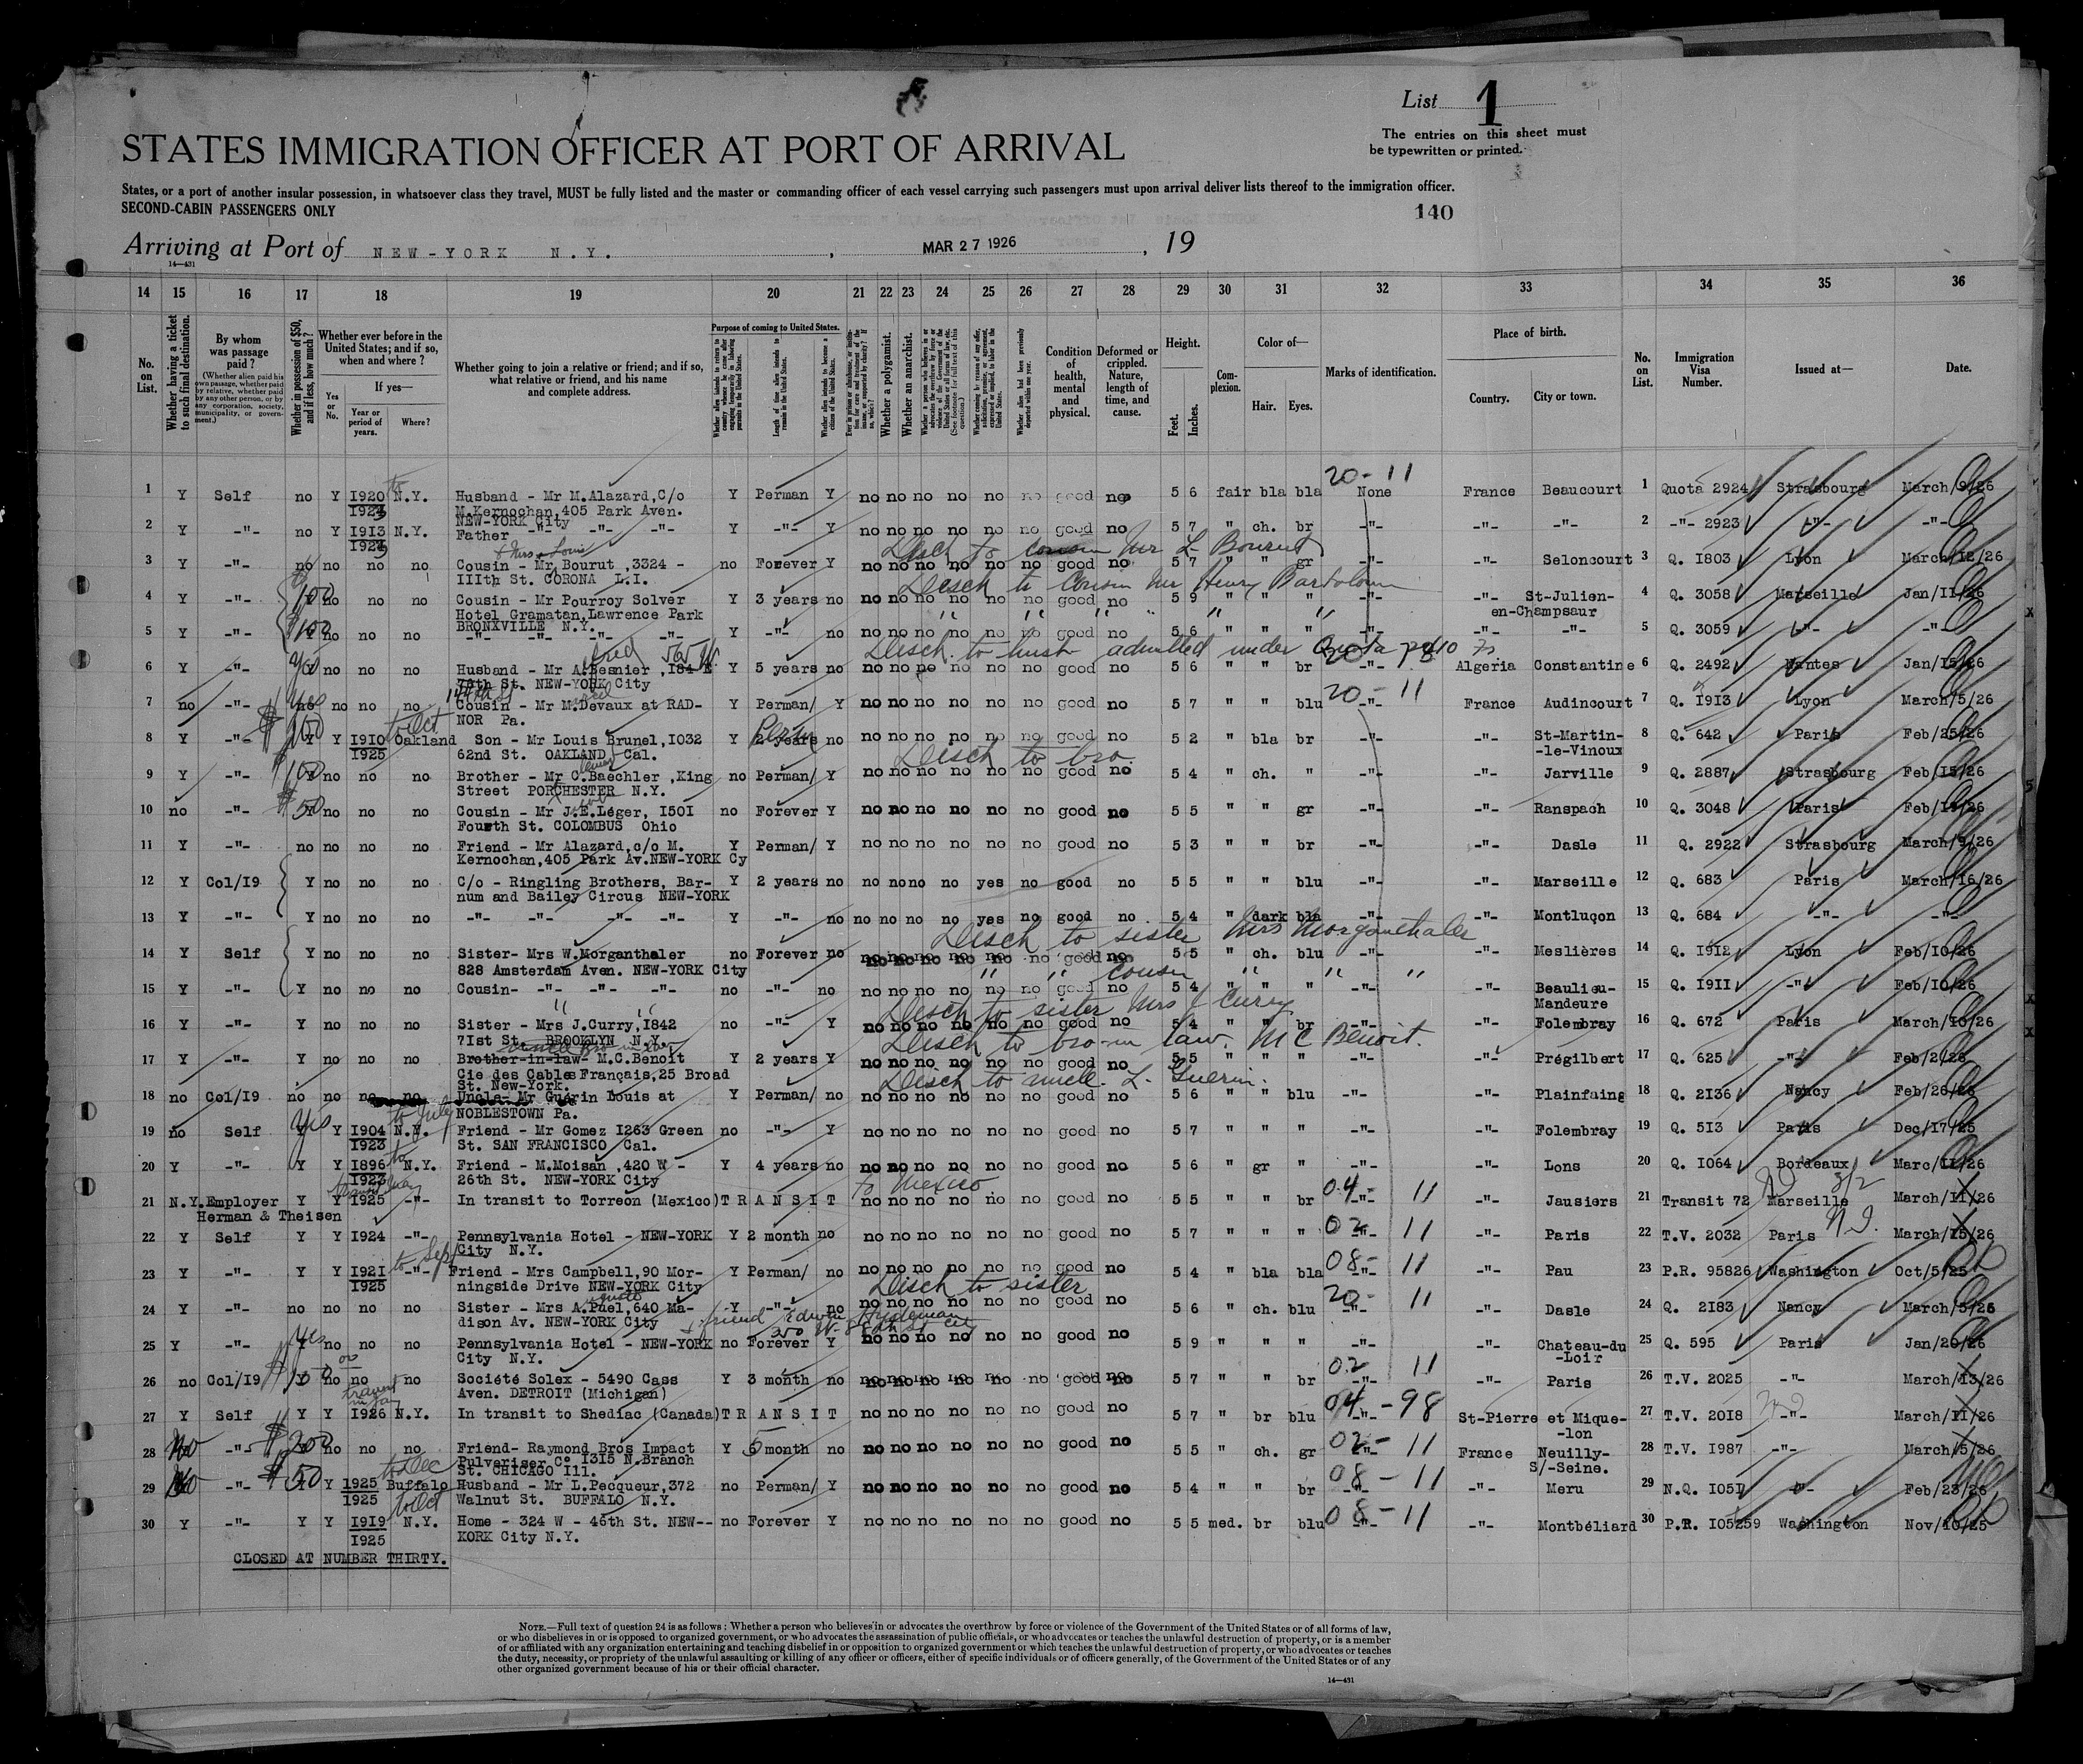 List 1
The entries on this sheet must
be typewritten or printed.
STATES IMMIGRATION OFFICER AT PORT OF ARRIVAL
States, or a port of another insular possession, in whatsoever class they travel, MUST be fully listed and the master or commanding officer of each vessel carrying such passengers must upon arrival deliver lists thereof to the immigration officer.
SECOND-CABIN PASSENGERS ONLY
140
Arriving at Port of NEW-YORK N.Y. , MAR 27 1926 , 19
14—431
14 15 16 17 18 19 20 21 22 23 24 25 26 27 28 29 30 31 32 33 34 35 36
No. on List.
Whether having a ticket to such final destination.
By whom was passage paid?
(Whether alien paid his own passage, whether paid by relative, whether paid by any other person, or by any corporation, society, municipality, or government.)
Whether in possession of $50, and if less, how much?
Whether ever before in the United States; and if so, when and where?
Yes or No.
If yes—
Year or period of years.
Where?
Whether going to join a relative or friend; and if so, what relative or friend, and his name and complete address.
Purpose of coming to United States.
Whether a polygamist.
Whether an anarchist.
Condition of health, mental and physical.
Deformed or crippled. Nature, length of time, and cause.
Height.
Feet. Inches.
Complexion.
Color of—
Hair. Eyes.
Marks of identification.
Place of birth.
Country. City or town.
No. on List.
Immigration Visa Number.
Issued at—
Date.
20-11
1 Y Self no Y 1920 to N.Y. Husband - Mr M.Alazard,C/o Y Perman Y no no no no no no good no 5 6 fair bla bla None France Beaucourt 1 Quota 2924 Strasbourg March/9/26
1923 M.Kernochan,405 Park Aven.
NEW-YORK City
2 Y -"- no Y 1913 N.Y. Father -"- -"- -"- Y -"- Y no no no no no no good no 5 7 " ch. br -"- -"- -"- 2 -"- 2923 -"- -"-
1923
& Mrs Louis Disch to cousin Mr L. Bourut
3 Y -"- no no no no Cousin - Mr Bourut ,3324 - no Forever Y no no no no no no good no 5 7 " " gr -"- -"- Seloncourt 3 Q. 1803 Lyon March/12/26
IIIth St. CORONA L.I.
Disch to Cousin Mr Henry
4 Y -"- $100 Y no no no Cousin - Mr Pourroy Solver Y 3 years no no no no no no no good no 5 9 " " " -"- -"- St-Julien- 4 Q. 3058 Marseille Jan/11/26
Hotel Gramatan,Lawrence Park en-Champsaur
BRONXVILLE N.Y.
5 Y -"- $100 Y no no no -"- -"- -"- -"- Y -"- no no no no no no no good no 5 6 " " " -"- -"- -"- 5 Q. 3059 -"- -"-
Disch. to husb admitted under Quota
6 Y -"- Y no no no Husband - Mr A.Besnier ,184 E Y 5 years no no no no no no no good no 5 6 " " br -"- Algeria Constantine 6 Q. 2492 Nantes Jan/15/26
78th St. NEW-YORK City
20-11
7 no -"- Yes no no no no Cousin - Mr M.Devaux at RAD- Y Perman/ Y no no no no no no good no 5 7 " " blu -"- France Audincourt 7 Q. 1913 Lyon March/5/26
NOR Pa.
8 Y -"- $100 Y Y 1910 to Oct Oakland Son - Mr Louis Brunel,1032 Y 2 years no no no no no no no good no 5 2 " bla br -"- -"- St-Martin- 8 Q. 642 Paris Feb/25/26
1925 62nd St. OAKLAND Cal. Perm -le-Vinoux
Disch to bro.
9 Y -"- $100 Y no no no Brother - Mr C.Baechler ,King no Perman/ Y no no no no no no good no 5 4 " ch. " -"- -"- Jarville 9 Q. 2887 Strasbourg Feb/15/26
Street PORCHESTER N.Y.
10 no -"- $50 Y no no no Cousin - Mr J.E.Léger, 1501 no Forever Y no no no no no no good no 5 5 " " gr -"- -"- Ranspach 10 Q. 3048 Paris Feb/19/26
Fourth St. COLOMBUS Ohio
11 Y -"- no no no no Friend - Mr Alazard,c/o M. Y Perman/ Y no no no no no no good no 5 3 " " br -"- -"- Dasle 11 Q. 2922 Strasbourg March/9/26
Kernochan,405 Park Av.NEW-YORK Cy
12 Y Col/19 Y no no no C/o - Ringling Brothers, Bar- Y 2 years no no no no no yes no good no 5 5 " " blu -"- -"- Marseille 12 Q. 683 Paris March/16/26
num and Bailey Circus NEW-YORK
13 Y -"- Y no no no -"- -"- -"- -"- Y -"- no no no no no yes no good no 5 4 " dark bla -"- -"- Montluçon 13 Q. 684 -"- -"-
Disch to sister Mrs Morganthaler
14 Y Self Y no no no Sister- Mrs W.Morganthaler no Forever no no no no no no no good no 5 5 " ch. blu -"- -"- Meslières 14 Q. 1912 Lyon Feb/10/26
828 Amsterdam Aven. NEW-YORK City
" " cousin " " "
15 Y -"- Y no no no Cousin- -"- -"- -"- no -"- no no no no no no no good no 5 4 " " " -"- -"- Beaulieu- 15 Q. 1911 -"- Feb/10/26
Mandeure
Disch to sister Mrs J Curry
16 Y -"- Y no no no Sister - Mrs J.Curry,1842 no -"- Y no no no no no no good no 5 4 " " br -"- -"- Folembray 16 Q. 672 Paris March/10/26
71st St. BROOKLYN N.Y.
Disch to bro-in law. M C Benoit.
17 Y -"- Y no no no Brother-in-law- M.C.Benoit Y 2 years Y no no no no no no good no 5 5 " " " -"- -"- Prégilbert 17 Q. 625 -"- Feb/2/26
Cie des Cables Français,25 Broad
St. New-York.
Disch to uncle. L. Guerin.
18 no Col/19 no no no no Uncle- Mr Guérin Louis at Y Perman/ no no no no no no no good no 5 6 " " blu -"- -"- Plainfaing 18 Q. 2136 Nancy Feb/26/26
NOBLESTOWN Pa.
19 no Self Yes Y Y 1904 to July N.Y. Friend - Mr Gomez 1263 Green no -"- Y no no no no no no good no 5 7 " " " -"- -"- Folembray 19 Q. 513 Paris Dec/17/25
1923 St. SAN FRANCISCO Cal.
20 Y -"- Y Y 1896 to N.Y. Friend - M.Moisan ,420 W - Y 4 years no no no no no no no good no 5 6 " gr " -"- -"- Lons 20 Q. 1064 Bordeaux Marc/11/26
1923 26th St. NEW-YORK City
to Mexico 04- 11
21 N.Y.Employer Y Y 1925 -"- In transit to Torreon (Mexico)TRANSIT no no no no no no good no 5 5 " " br -"- -"- Jausiers 21 Transit 72 Marseille March/11/26
Herman & Theisen
02- 11
22 Y Self Y Y 1924 -"- Pennsylvania Hotel - NEW-YORK Y 2 month no no no no no no no good no 5 7 " " " -"- -"- Paris 22 T.V. 2032 Paris March/15/26
City N.Y.
08- 11
23 Y -"- Y Y 1921 to Sept -"- Friend - Mrs Campbell,90 Mor- Y Perman/ no no no no no no no good no 5 4 " bla bla -"- -"- Pau 23 P.R. 95826 Washington Oct/5/25
1925 ningside Drive NEW-YORK City
Disch to sister 20- 11
24 Y -"- no no no no Sister - Mrs A.Puel,640 Ma- Y -"- no no no no no no no good no 5 6 " ch. blu -"- -"- Dasle 24 Q. 2183 Nancy March/5/26
dison Av. NEW-YORK City
25 Y -"- Yes Y no no no Pennsylvania Hotel - NEW-YORK no Forever Y no no no no no no good no 5 9 " " " -"- -"- Chateau-du 25 Q. 595 Paris Jan/20/26
City N.Y. -Loir
02 11
26 no Col/19 Y no no no Société Solex - 5490 Cass Y 3 month no no no no no no no good no 5 7 " " br -"- -"- Paris 26 T.V. 2025 -"- March/13/26
Aven. DETROIT (Michigan)
04 -98
27 Y Self Y Y 1926 N.Y. In transit to Shediac (Canada)TRANSIT no no no no no no good no 5 7 " br blu -"- St-Pierre et Mique- 27 T.V. 2018 -"- March/11/26
-lon
02- 11
28 No -"- $200 Y no no no Friend- Raymond Bros Impact Y 5 month no no no no no no no good no 5 5 " ch. gr -"- France Neuilly- 28 T.V. 1987 -"- March/5/26
Pulveriser Co 1315 N.Branch S/-Seine.
St. CHICAGO Ill.
08 - 11
29 No -"- $50 Y Y 1925 to Dec Buffalo Husband - Mr L.Pecqueur,372 no Perman/ Y no no no no no no good no 5 4 " " br -"- -"- Meru 29 N.Q. 1051 -"- Feb/23/26
1925 Walnut St. BUFFALO N.Y.
08-11
30 Y -"- Y Y 1919 to Oct N.Y. Home - 324 W - 46th St. NEW-- no Forever Y no no no no no no good no 5 5 med. br blu -"- -"- Montbéliard 30 P.R. 105259 Washington Nov/10/25
1925 KORK City N.Y.
CLOSED AT NUMBER THIRTY.
NOTE.—Full text of question 24 is as follows: Whether a person who believes in or advocates the overthrow by force or violence of the Government of the United States or of all forms of law,
or who disbelieves in or is opposed to organized government, or who advocates the assassination of public officials, or who advocates or teaches the unlawful destruction of property, or is a member
of or affiliated with any organization entertaining and teaching disbelief in or opposition to organized government or which teaches the unlawful destruction of property, or who advocates or teaches
the duty, necessity, or propriety of the unlawful assaulting or killing of any officer or officers, either of specific individuals or of officers generally, of the Government of the United States or of any
other organized government because of his or their official character.
14—431